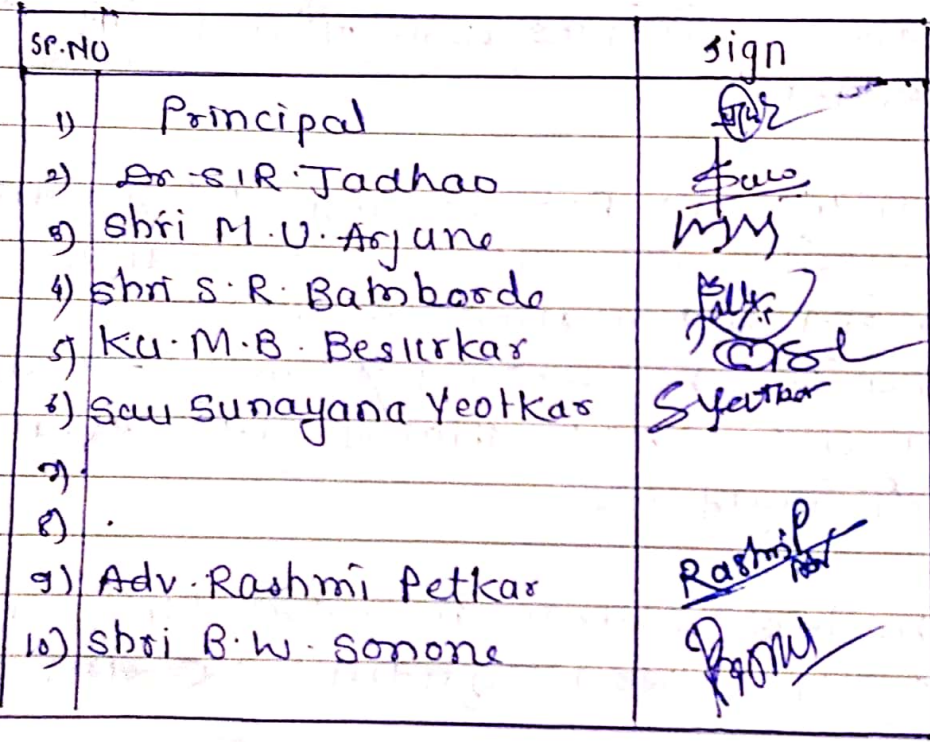 SP.NO sign
1) Principal
2) Dr S.R. Jadhao
3) Shri M.U. Arjune
4) Shri S.R. Bamborde
5) Ku. M.B. Beslirkar
6) Sau Sunayana Yeotkar Syeutkar
7)
8)
9) Adv. Rashmi Petkar Rashmi P
10) Shri B.W. Sonone